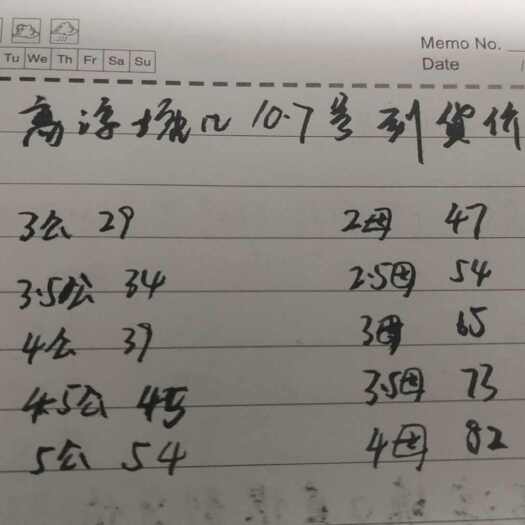 Memo No.
Tu We Th Fr Sa Su
Date
高淳塘口 10.7号到货价
3公 29 2母 47
3.5公 34 2.5母 54
4公 39 3母 65
4.5公 45 3.5母 73
5公 54 4母 82